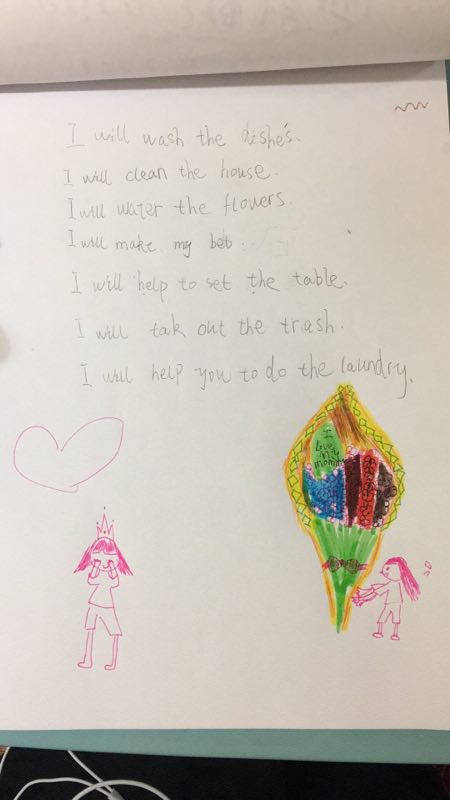 I will wash the dishe's.
I will clean the house.
I will water the flowers.
I will make my beb.
I will help to set the table.
I will tak out the trash.
I will help you to do the laundry.
I
Love
my
mommy